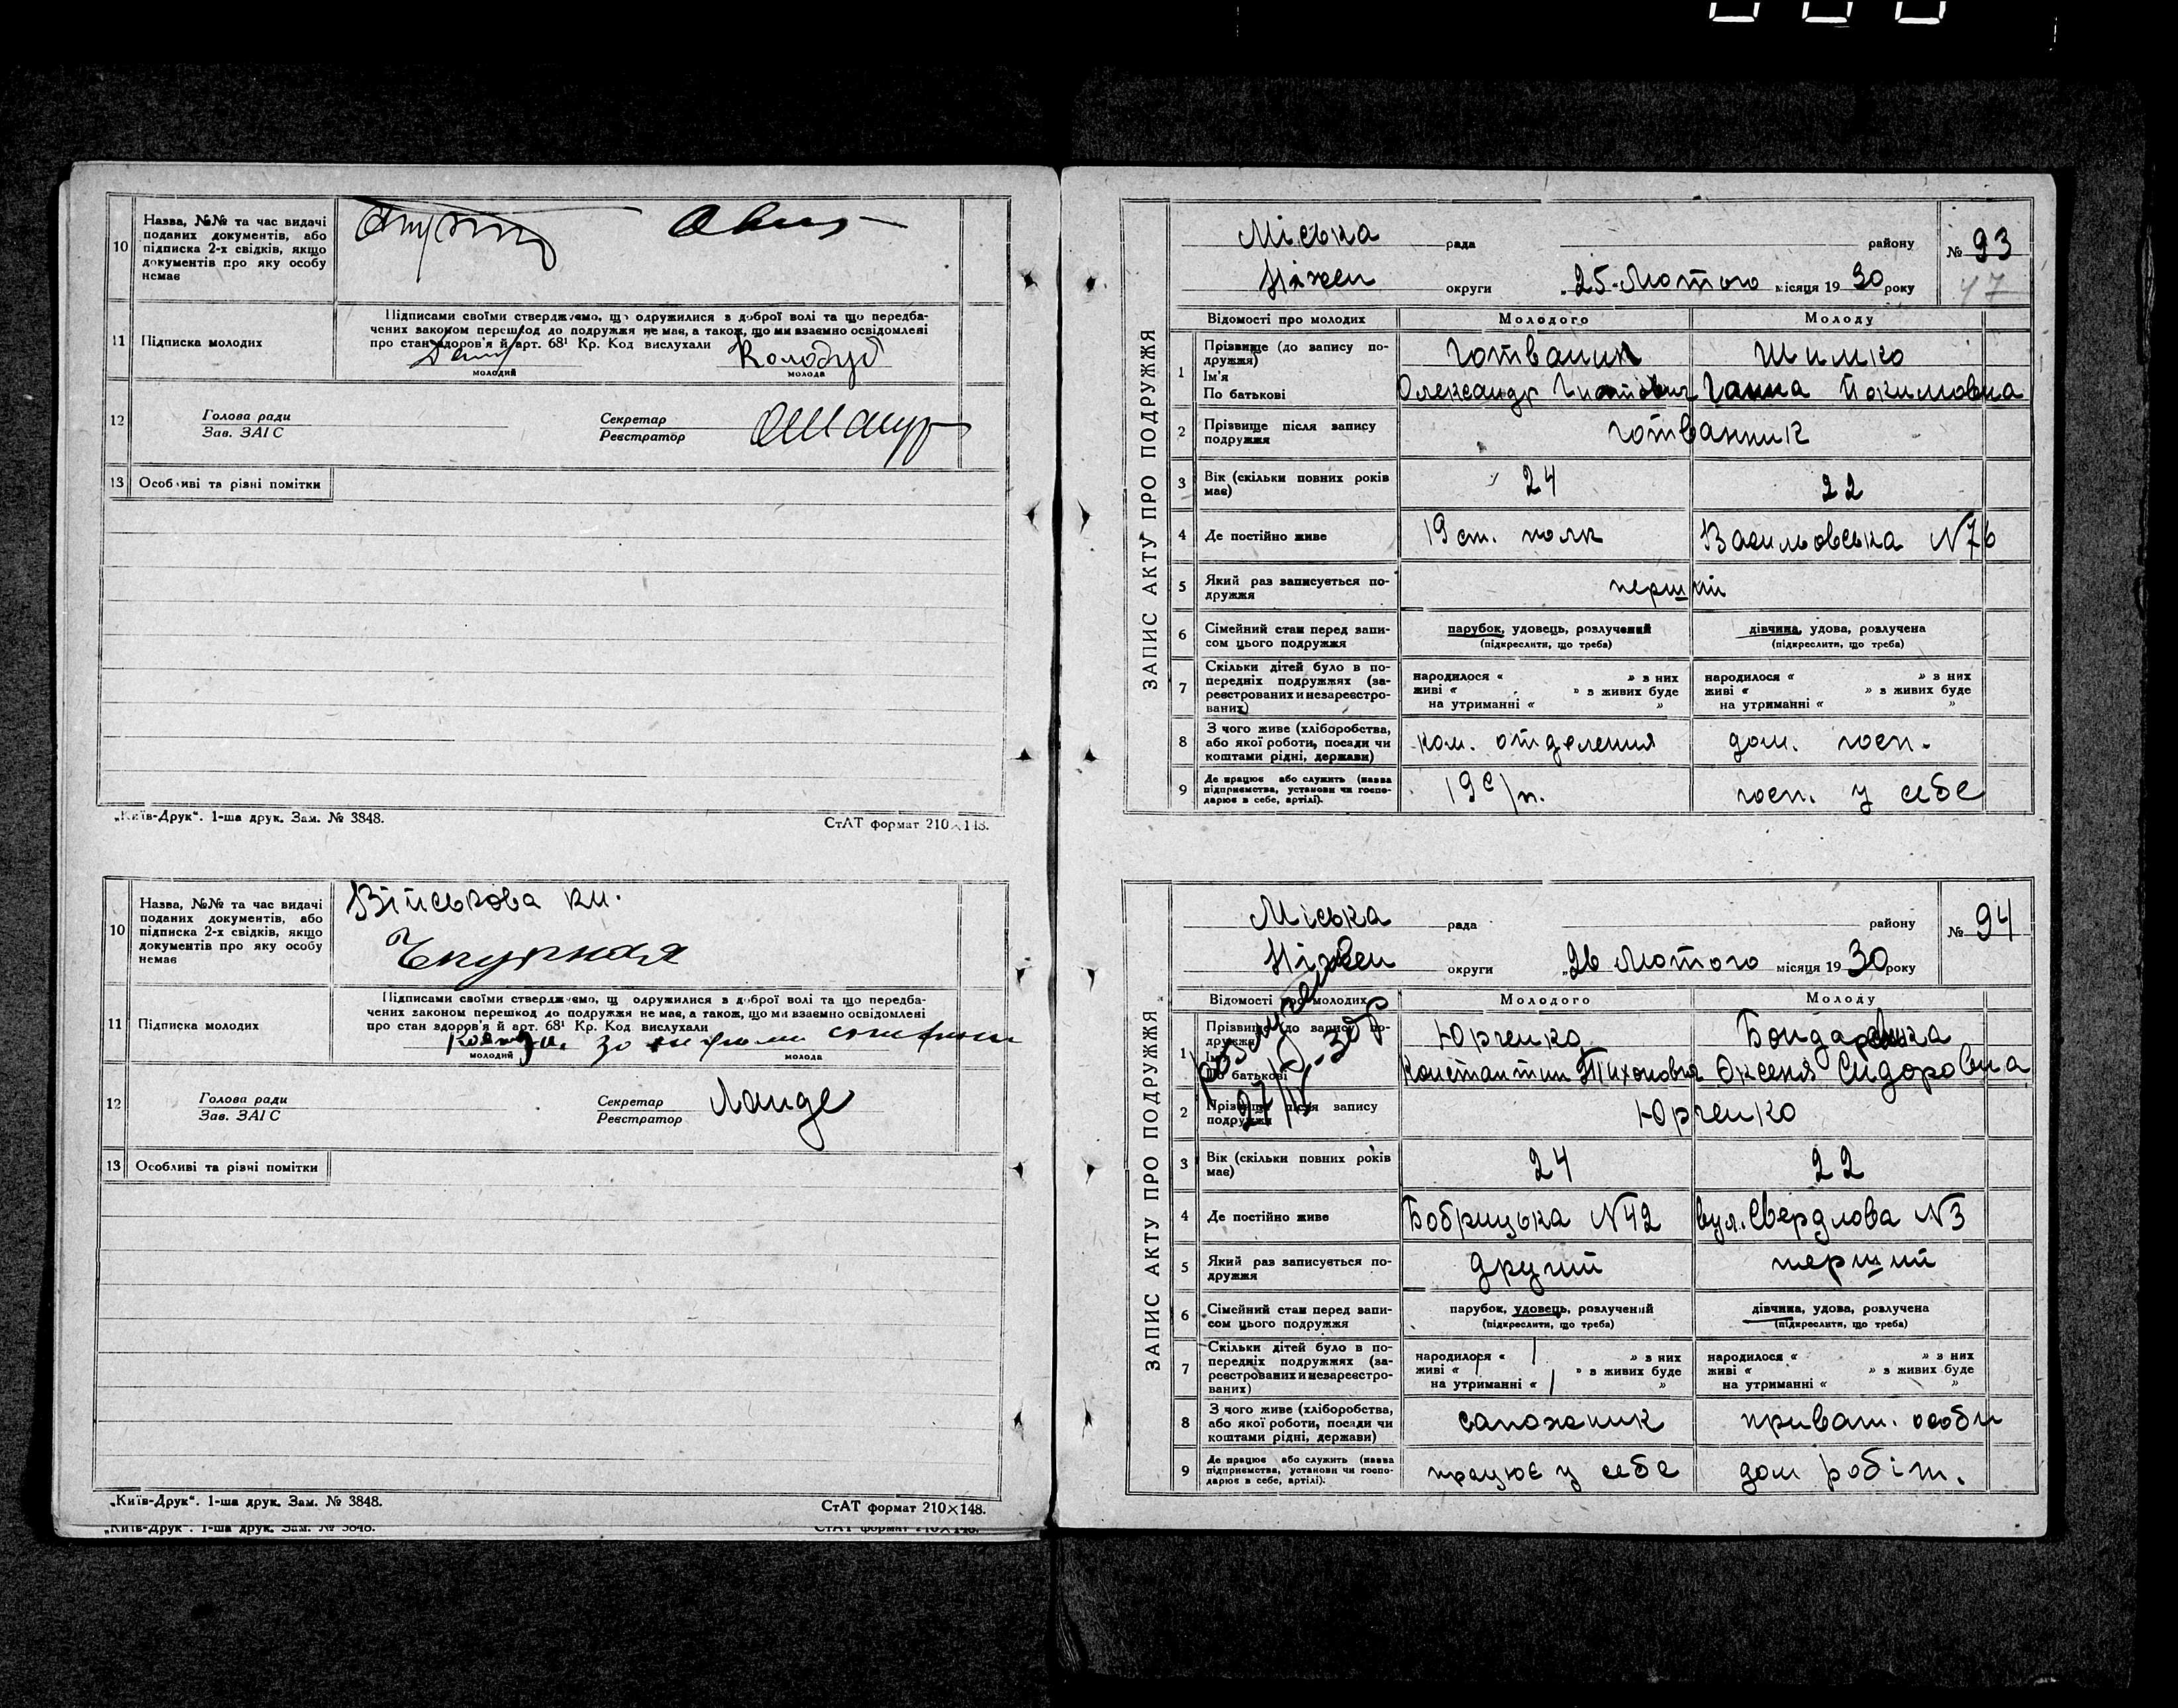 10
Назва, №№ та час видачі
поданих документів, або
підписка 2-х свідків, якщо
документів про яку особу
немає
11
Підписка молодих
Підписами своїми стверджуємо, що одружилися з доброї волі та що передба-
чених законом перешкод до подружжя не має, а також, що ми взаємно освідомлені
про стан здоров'я й арт. 68¹ Кр. Код вислухали
Колодуб
молодий
молода
12
Голова ради
Зав. ЗАГС
Секретар
Реєстратор
13
Особливі та різні помітки
„Київ-Друк". 1-ша друк. Зам. № 3848.
СтАТ формат 210×148.
10
Назва, №№ та час видачі
поданих документів, або
підписка 2-х свідків, якщо
документів про яку особу
немає
Військова кн.
11
Підписка молодих
Підписами своїми стверджуємо, щ одружилися з доброї волі та що передба-
чених законом перешкод до подружжя не має, а також, що ми взаємно освідомлені
про стан здоров'я й арт. 68¹ Кр. Код вислухали
молодий
молода
12
Голова ради
Зав. ЗАГС
Секретар
Реєстратор
Ланде
13
Особливі та різні помітки
„Київ-Друк". 1-ша друк. Зам. № 3848.
СтАТ формат 210×148.
„Київ-Друк". 1-ша друк. Зам. № 3848.
СтАТ формат 210×148.
ЗАПИС АКТУ ПРО ПОДРУЖЖЯ
Міська рада району № 93
Ніжен округи 25 Лютого місяця 1930 року
47
Відомості про молодих Молодого Молоду
1
Прізвище (до запису по-
дружжя)
Ім'я
По батькові
Шимко
Олександр Ганна Йокимовна
2
Прізвище після запису
подружжя
Готванник
3
Вік (скільки повних років
має)
24 22
4
Де постійно живе
19 ст. полк Васильовська N76
5
Який раз записується по-
дружжя
перший
6
Сімейний стан перед запи-
сом цього подружжя
парубок, удовець, розлучений
(підкреслити, що треба)
дівчина, удова, розлучена
(підкреслити, що треба)
7
Скільки дітей було в по-
передніх подружжях (за-
реєстрованих и незареєстро-
ваних)
народилося « » з них
живі « » з живих буде
на утриманні « »
народилося « » з них
живі « » з живих буде
на утриманні « »
8
З чого живе (хліборобства,
або якої роботи, посади чи
коштами рідні, держави)
ком. отделения дом. госп.
9
Де працює або служить (назва
підприємства, установи чи госпо-
дарює в себе, артілі).
19 с/п. госп. у себе
ЗАПИС АКТУ ПРО ПОДРУЖЖЯ
Міська рада району № 94
Ніжен округи 26 Лютого місяця 1930 року
Відомості про молодих Молодого Молоду
27/IV-30р
1
Прізвище (до запису по-
дружжя)
Ім'я
По батькові
Юрченко
Константин Тихонович Оксеня Сидоровна
2
Прізвище після запису
подружжя
Юрченко
3
Вік (скільки повних років
має)
24 22
4
Де постійно живе
Бобрицька N42 вул. Свердлова N3
5
Який раз записується по-
дружжя
другий перший
6
Сімейний стан перед запи-
сом цього подружжя
парубок, удовець, розлучений
(підкреслити, що треба)
дівчина, удова, розлучена
(підкреслити, що треба)
7
Скільки дітей було в по-
передніх подружжях (за-
реєстрованих и незареєстро-
ваних)
народилося « 1 » з них
живі « 1 » з живих буде
на утриманні « 1 »
народилося « » з них
живі « » з живих буде
на утриманні « »
8
З чого живе (хліборобства,
або якої роботи, посади чи
коштами рідні, держави)
сапожник приват. особи
9
Де працює або служить (назва
підприємства, установи чи госпо-
дарює в себе, артілі).
працює у себе дом робіт.